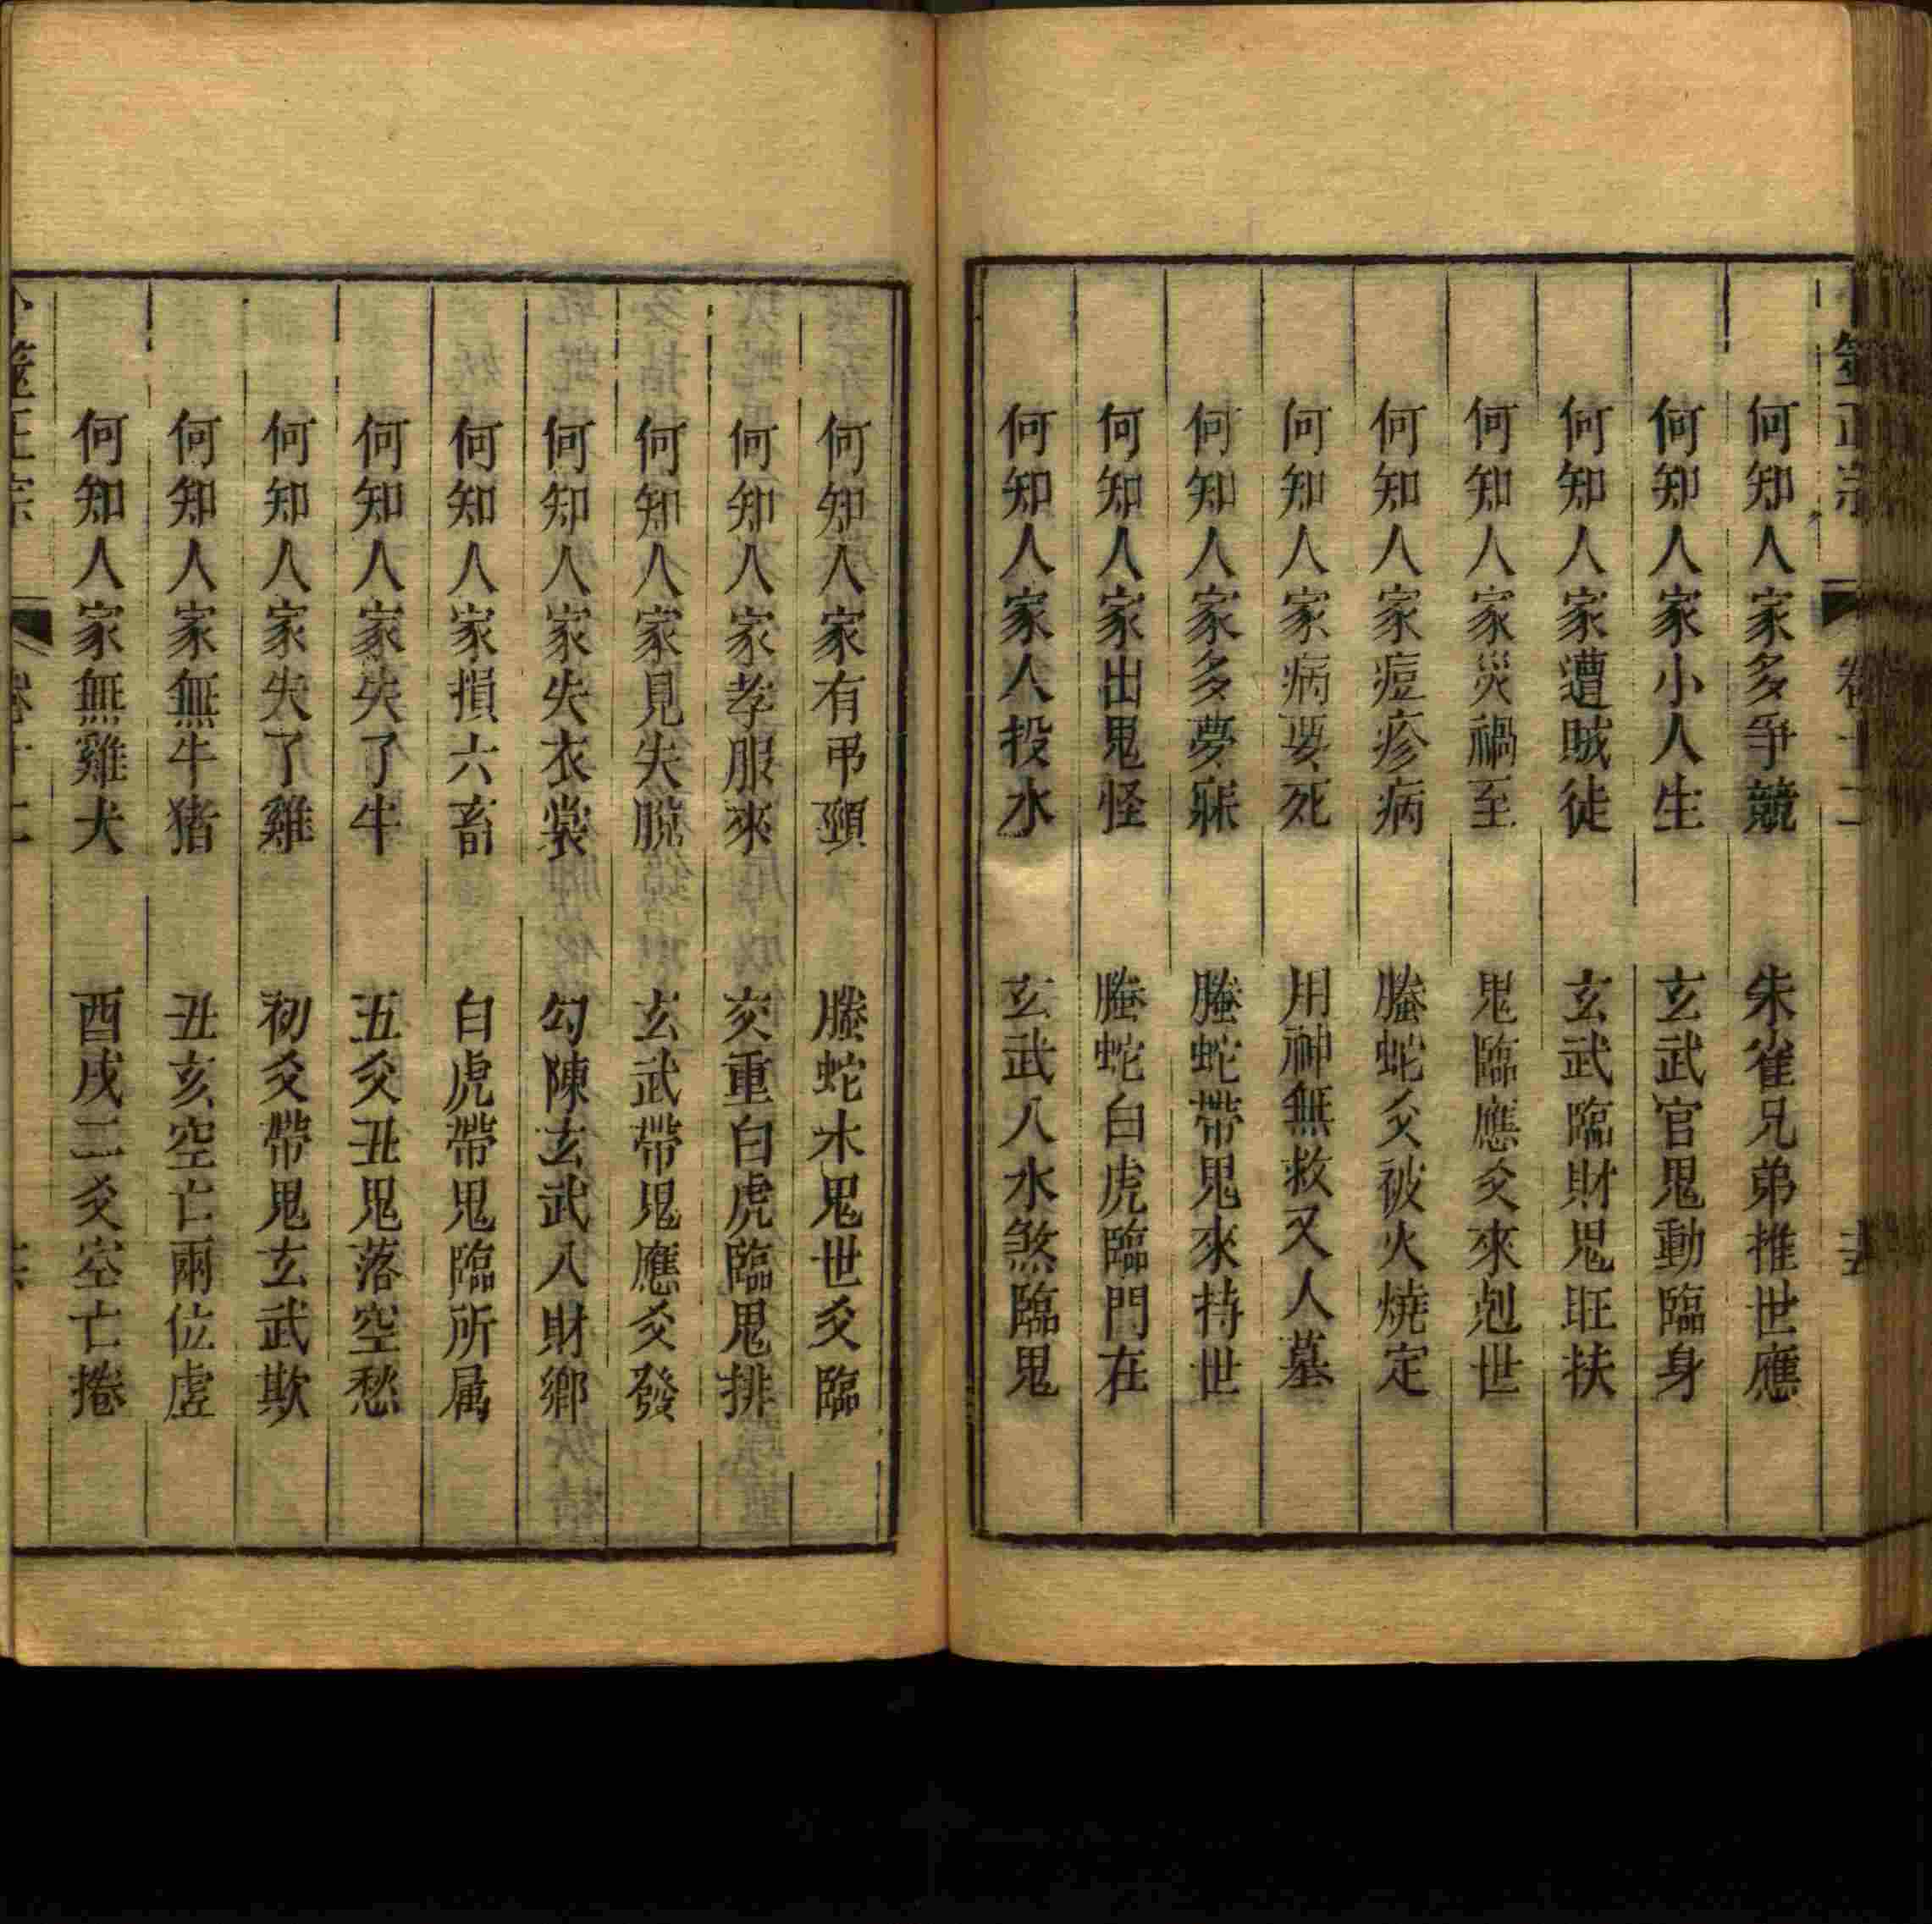 筮正宗 卷十二
何知人家多爭競 朱雀兄弟推世應
何知人家小人生 玄武官鬼動臨身
何知人家遭賊徒 玄武臨財鬼旺扶
何知人家災禍至 鬼臨應爻來剋世
何知人家痘疹病 螣蛇爻被火燒定
何知人家病要死 用神無救又入墓
何知人家多夢寐 螣蛇帶鬼來持世
何知人家出鬼怪 螣蛇白虎臨門在
何知人家人投水 玄武入水煞臨鬼
何知人家有弔頸 螣蛇木鬼世爻臨
何知人家孝服來 交重白虎臨鬼排
何知人家見失脫 玄武帶鬼應爻發
何知人家失衣裳 勾陳玄武入財鄉
何知人家損六畜 白虎帶鬼臨所属
何知人家失了牛 五爻丑鬼落空愁
何知人家失了雞 初爻帶鬼玄武欺
何知人家無牛猪 丑亥空亡兩位虛
何知人家無雞犬 酉戌二爻空亡捲
筮正宗 卷十二